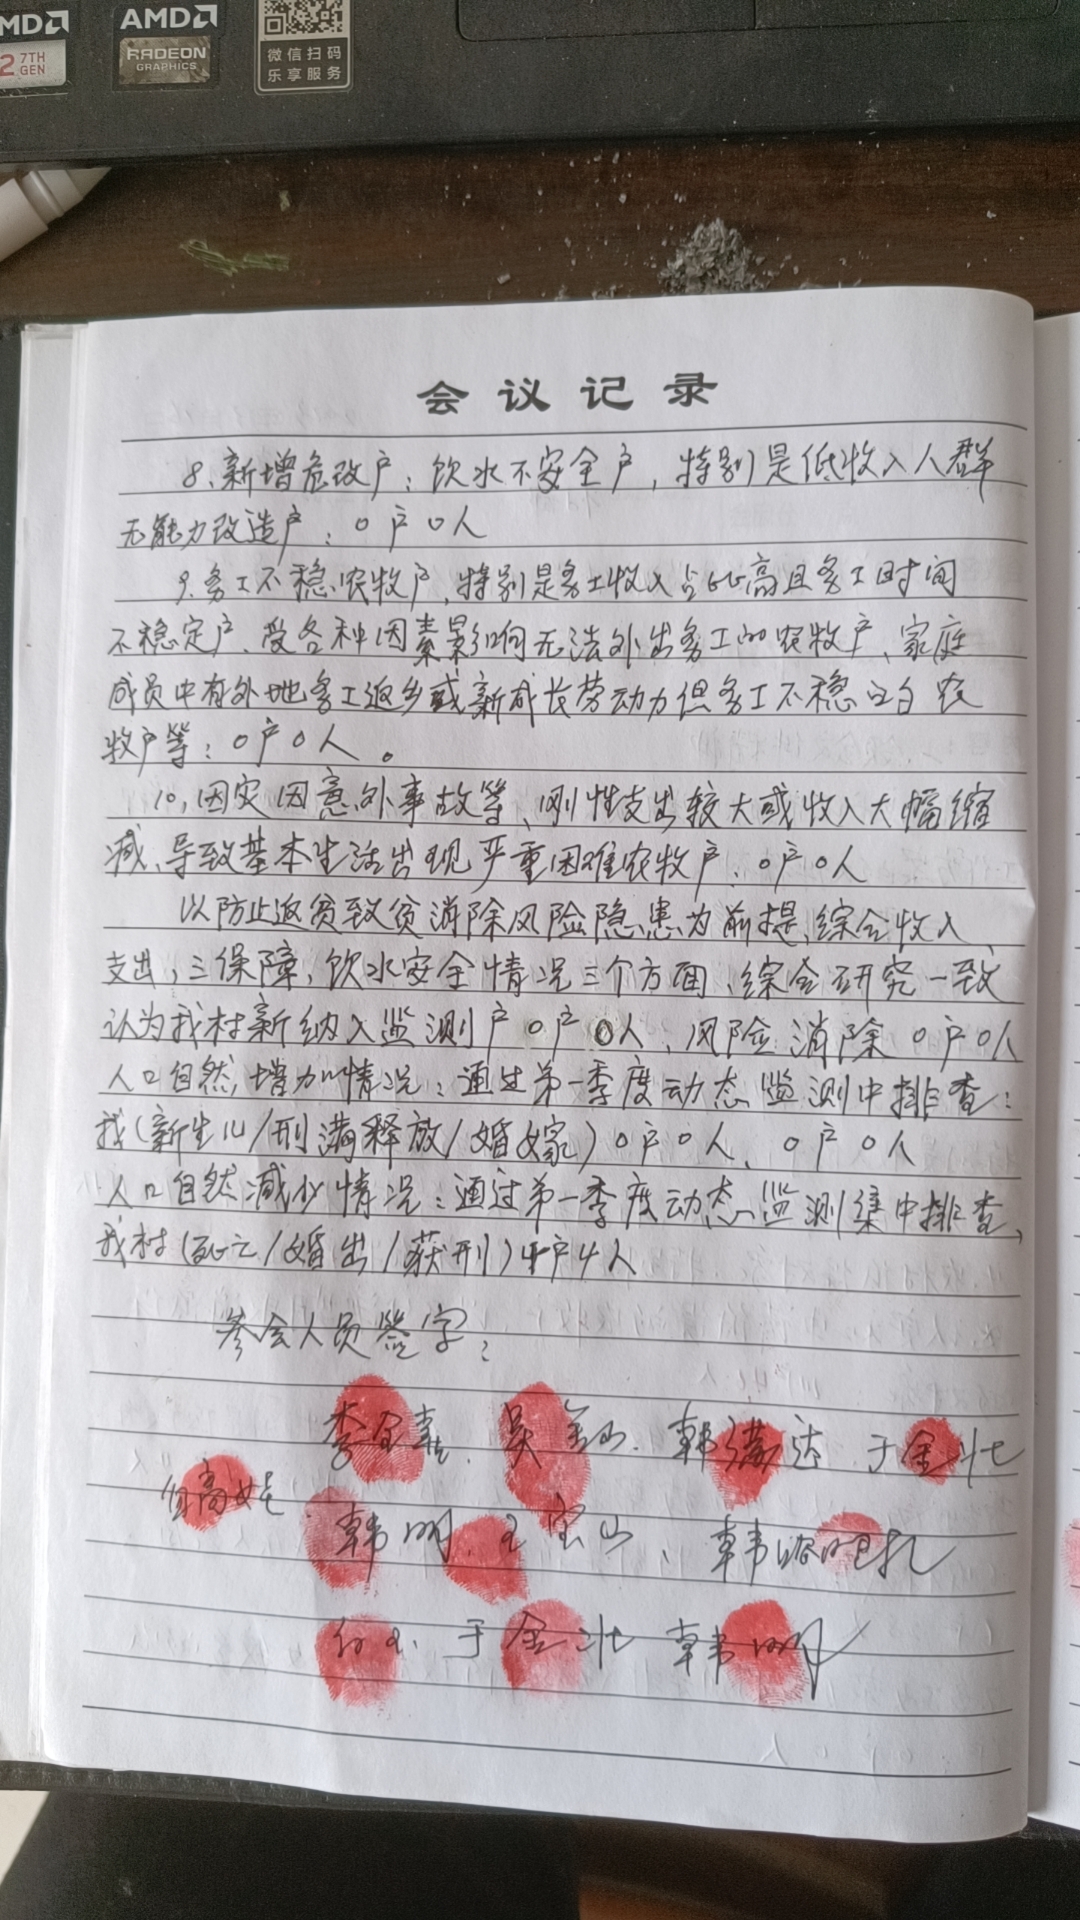 AMD
AMD
2 7TH GEN
RADEON
GRAPHICS
微信扫码
乐享服务
会议记录
8、新增危改户:饮水不安全户,特别是低收入人群
无能力改造户:0户0人
9.务工不稳农牧户,特别是务工收入占比高且务工时间
不稳定户、受各种因素影响无法外出务工的农牧户、家庭
成员中有外地务工返乡或新成长劳动力但务工不稳的农
牧户等:0户0人。
10,因灾因意外事故等、刚性支出较大或收入大幅缩
减、导致基本生活出现严重困难农牧户:0户0人
以防止返贫致贫消除风险隐患为前提、综合收入、
支出,三保障,饮水安全情况三个方面、综合研究一致
认为我村新纳入监测户0户0人、风险消除0户0人
人口自然增加情况:通过第一季度动态监测中排查:
我(新生儿/刑满释放/婚嫁)0户0人、0户0人
人口自然减少情况:通过第一季度动态监测集中排查,
我村(死亡/婚出/获刑)4户4人
参会人员签字:
李金 吴金山 韩满达 于金壮
高娃
韩明、王宝山、韩
于金壮 韩明